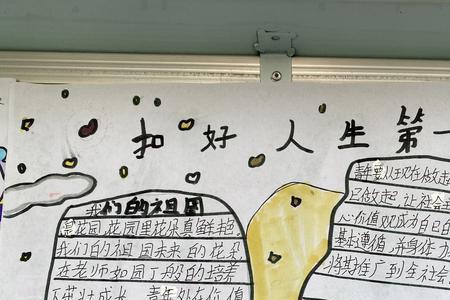 扣好人生第一
我们的祖国
是花园,花园里花朵真鲜艳
我们的祖国未来的花朵
在老师如园丁般的培养
下茁壮成长,青年处在价值
青年要从现在做起
己做起,让社会
心价值观成为自己的
基本遵循,并身体力
将其推广到全社会